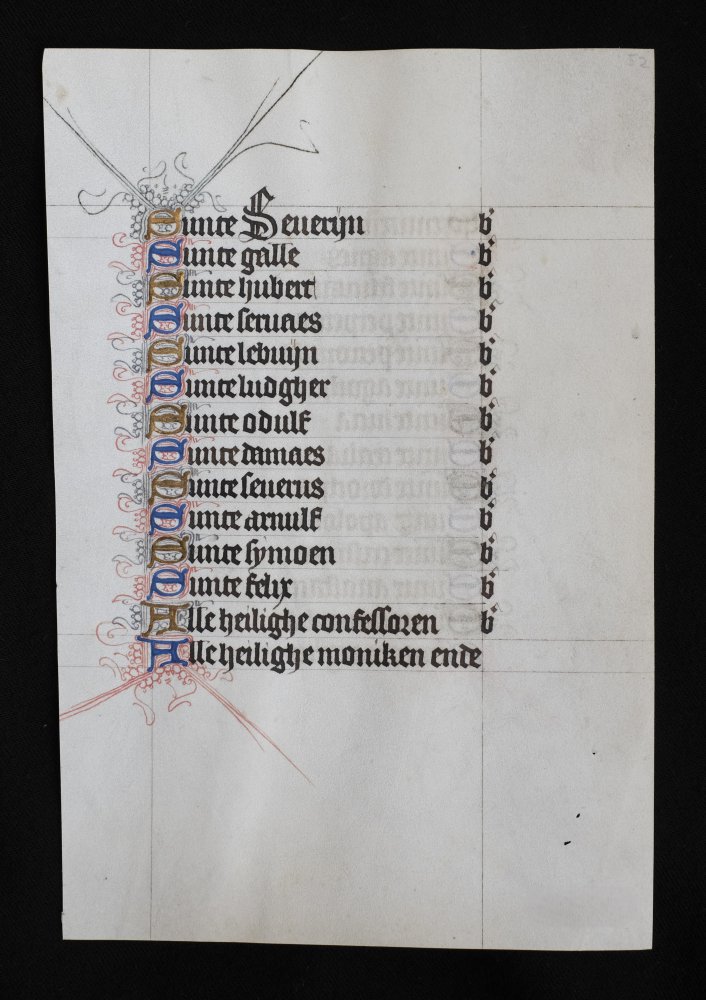 Sunte Seuerijn b
Sunte galle b
Sunte hubert b
Sunte seruaes b
Sunte lebuijn b
Sunte ludgher b
Sunte odulf b
Sunte damaes b
Sunte seuerus b
Sunte arnulf b
Sunte symoen b
Sunte felix b
Alle heilighe confessoren b
Alle heilighe moniken ende
52